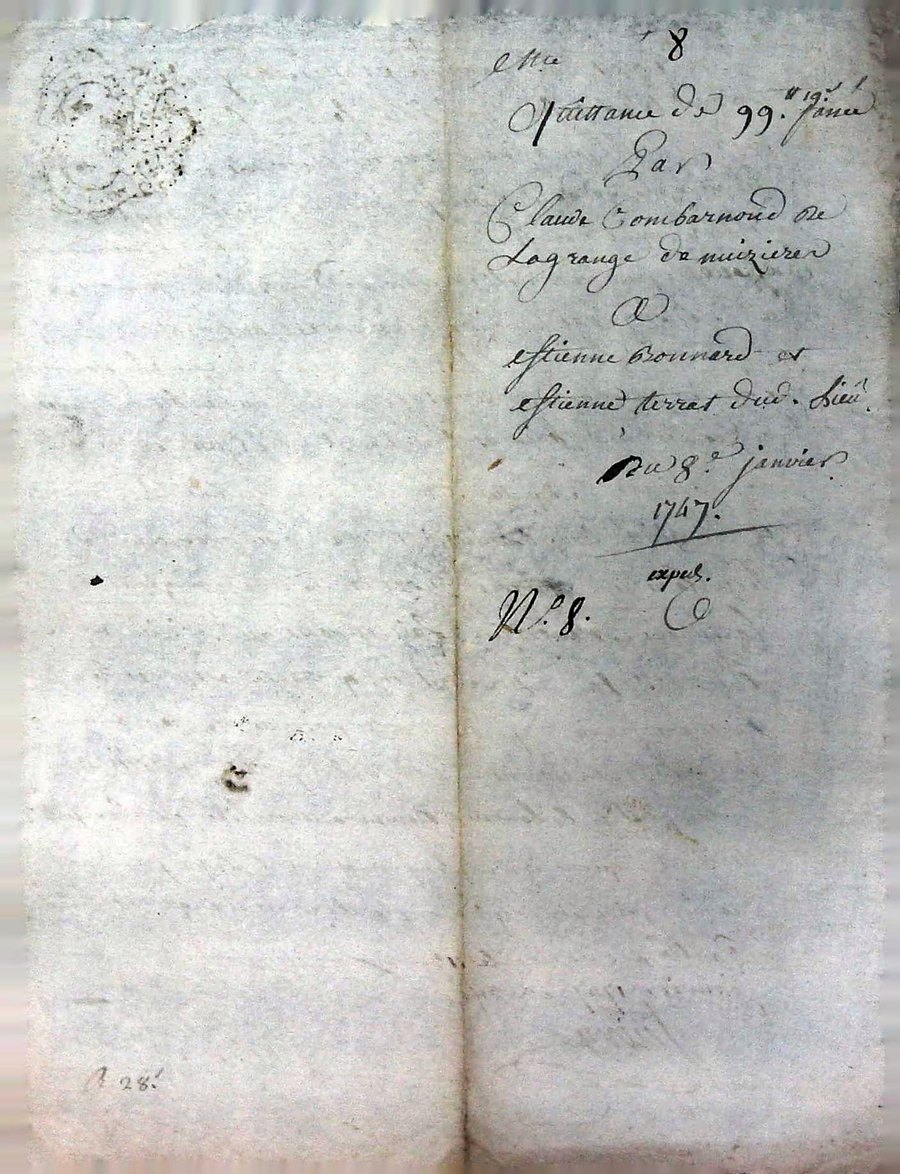 8
Quittance de 99.ᵗᵗ 19ˢ
Par
Claude Combarnond de
Lagrange de mizieres
A
estienne Bonnard et
estienne terrat dud. Lieu.
Du 8.e janvier
1747.
exped.
N.o 8.
28.s